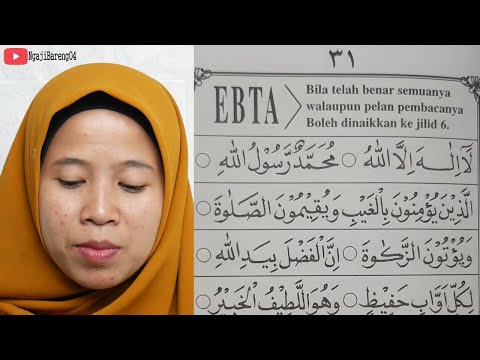 NgajiBareng04
٣١
EBTA
Bila telah benar semuanya
walaupun pelan pembacanya
Boleh dinaikkan ke jilid 6.
لَا اِلٰـهَ اِلَّا اللهُ ○ مُحَمَّدٌ رَّسُوْلُ اللهِ ○
الَّذِيْنَ يُؤْمِنُوْنَ بِالْغَيْبِ وَيُقِيْمُوْنَ الصَّلٰوةَ
وَيُؤْتُوْنَ الزَّكٰوةَ ○ اِنَّ الْفَضْلَ بِيَدِ اللهِ ○
لِكُلِّ اَوَّابٍ حَفِيْظٍ ○ وَهُوَ اللَّطِيْفُ الْخَبِيْرُ ○